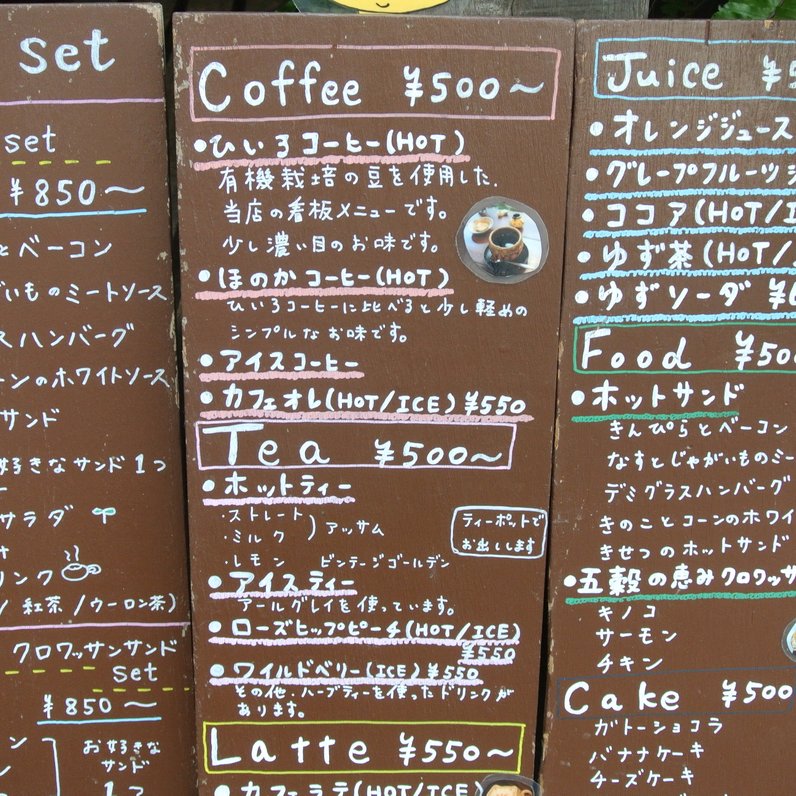 set
set
¥850〜
とベーコン
いものミートソース
スハンバーグ
ーンのホワイトソース
サンド
お好きなサンド1つ
サラダ
リンク
/紅茶/ウーロン茶)
クロワッサンサンド
set
¥850〜
お好きな
サンド
1つ
Coffee ¥500〜
•ひいろコーヒー(HOT)
有機栽培の豆を使用した.
当店の看板メニューです。
少し濃い目のお味です。
•ほのかコーヒー(HOT)
ひいろコーヒーに比べると少し軽めの
シンプルなお味です。
•アイスコーヒー
•カフェオレ(HOT/ICE)¥550
Tea ¥500〜
•ホットティー
・ストレート
・ミルク
)アッサム
・レモン ビンテージゴールデン
ティーポットで
お出しします
•アイスティー
アールグレイを使っています。
•ローズヒップピーチ(HOT/ICE)
¥550
•ワイルドベリー(ICE)¥550
その他、ハーブティーを使ったドリンクが
あります。
Latte ¥550〜
•カフェラテ(HOT/ICE)
Juice ¥5
•オレンジジュース
•グレープフルーツジ
•ココア(HOT/I
•ゆず茶(HOT/
•ゆずソーダ ¥6
Food ¥500
•ホットサンド
きんぴらとベーコン
なすとじゃがいものミー
デミグラスハンバーグ
きのことコーンのホワイ
きせつのホットサンド
•五穀の恵みクロワッサ
キノコ
サーモン
チキン
Cake ¥500
ガトーショコラ
バナナケーキ
チーズケーキ